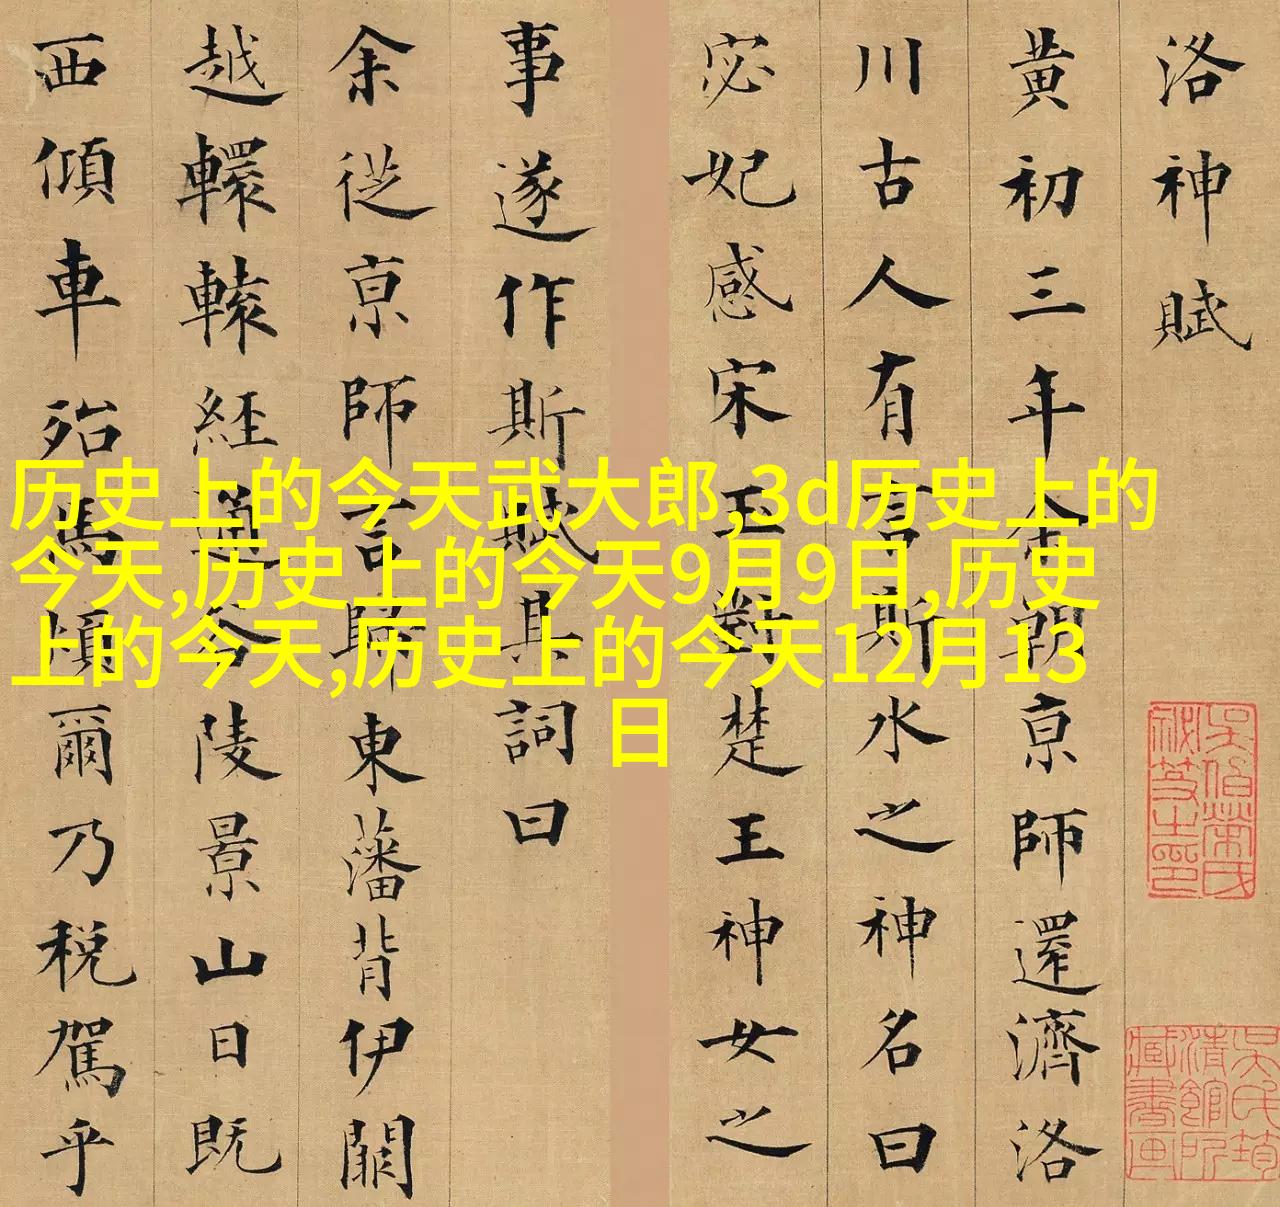 洛神賦
黃初三年余朝京師還濟洛
川古人有言斯水之神名曰
宓妃感宋玉對楚王神女之
事遂作斯賦其詞曰
余從京師言歸東藩背伊闕
越轘轅經通谷陵景山日既
西傾車殆馬煩爾乃税駕乎
历史上的今天武大郎,3d历史上的
今天,历史上的今天9月9日,历史
上的今天,历史上的今天12月13
日